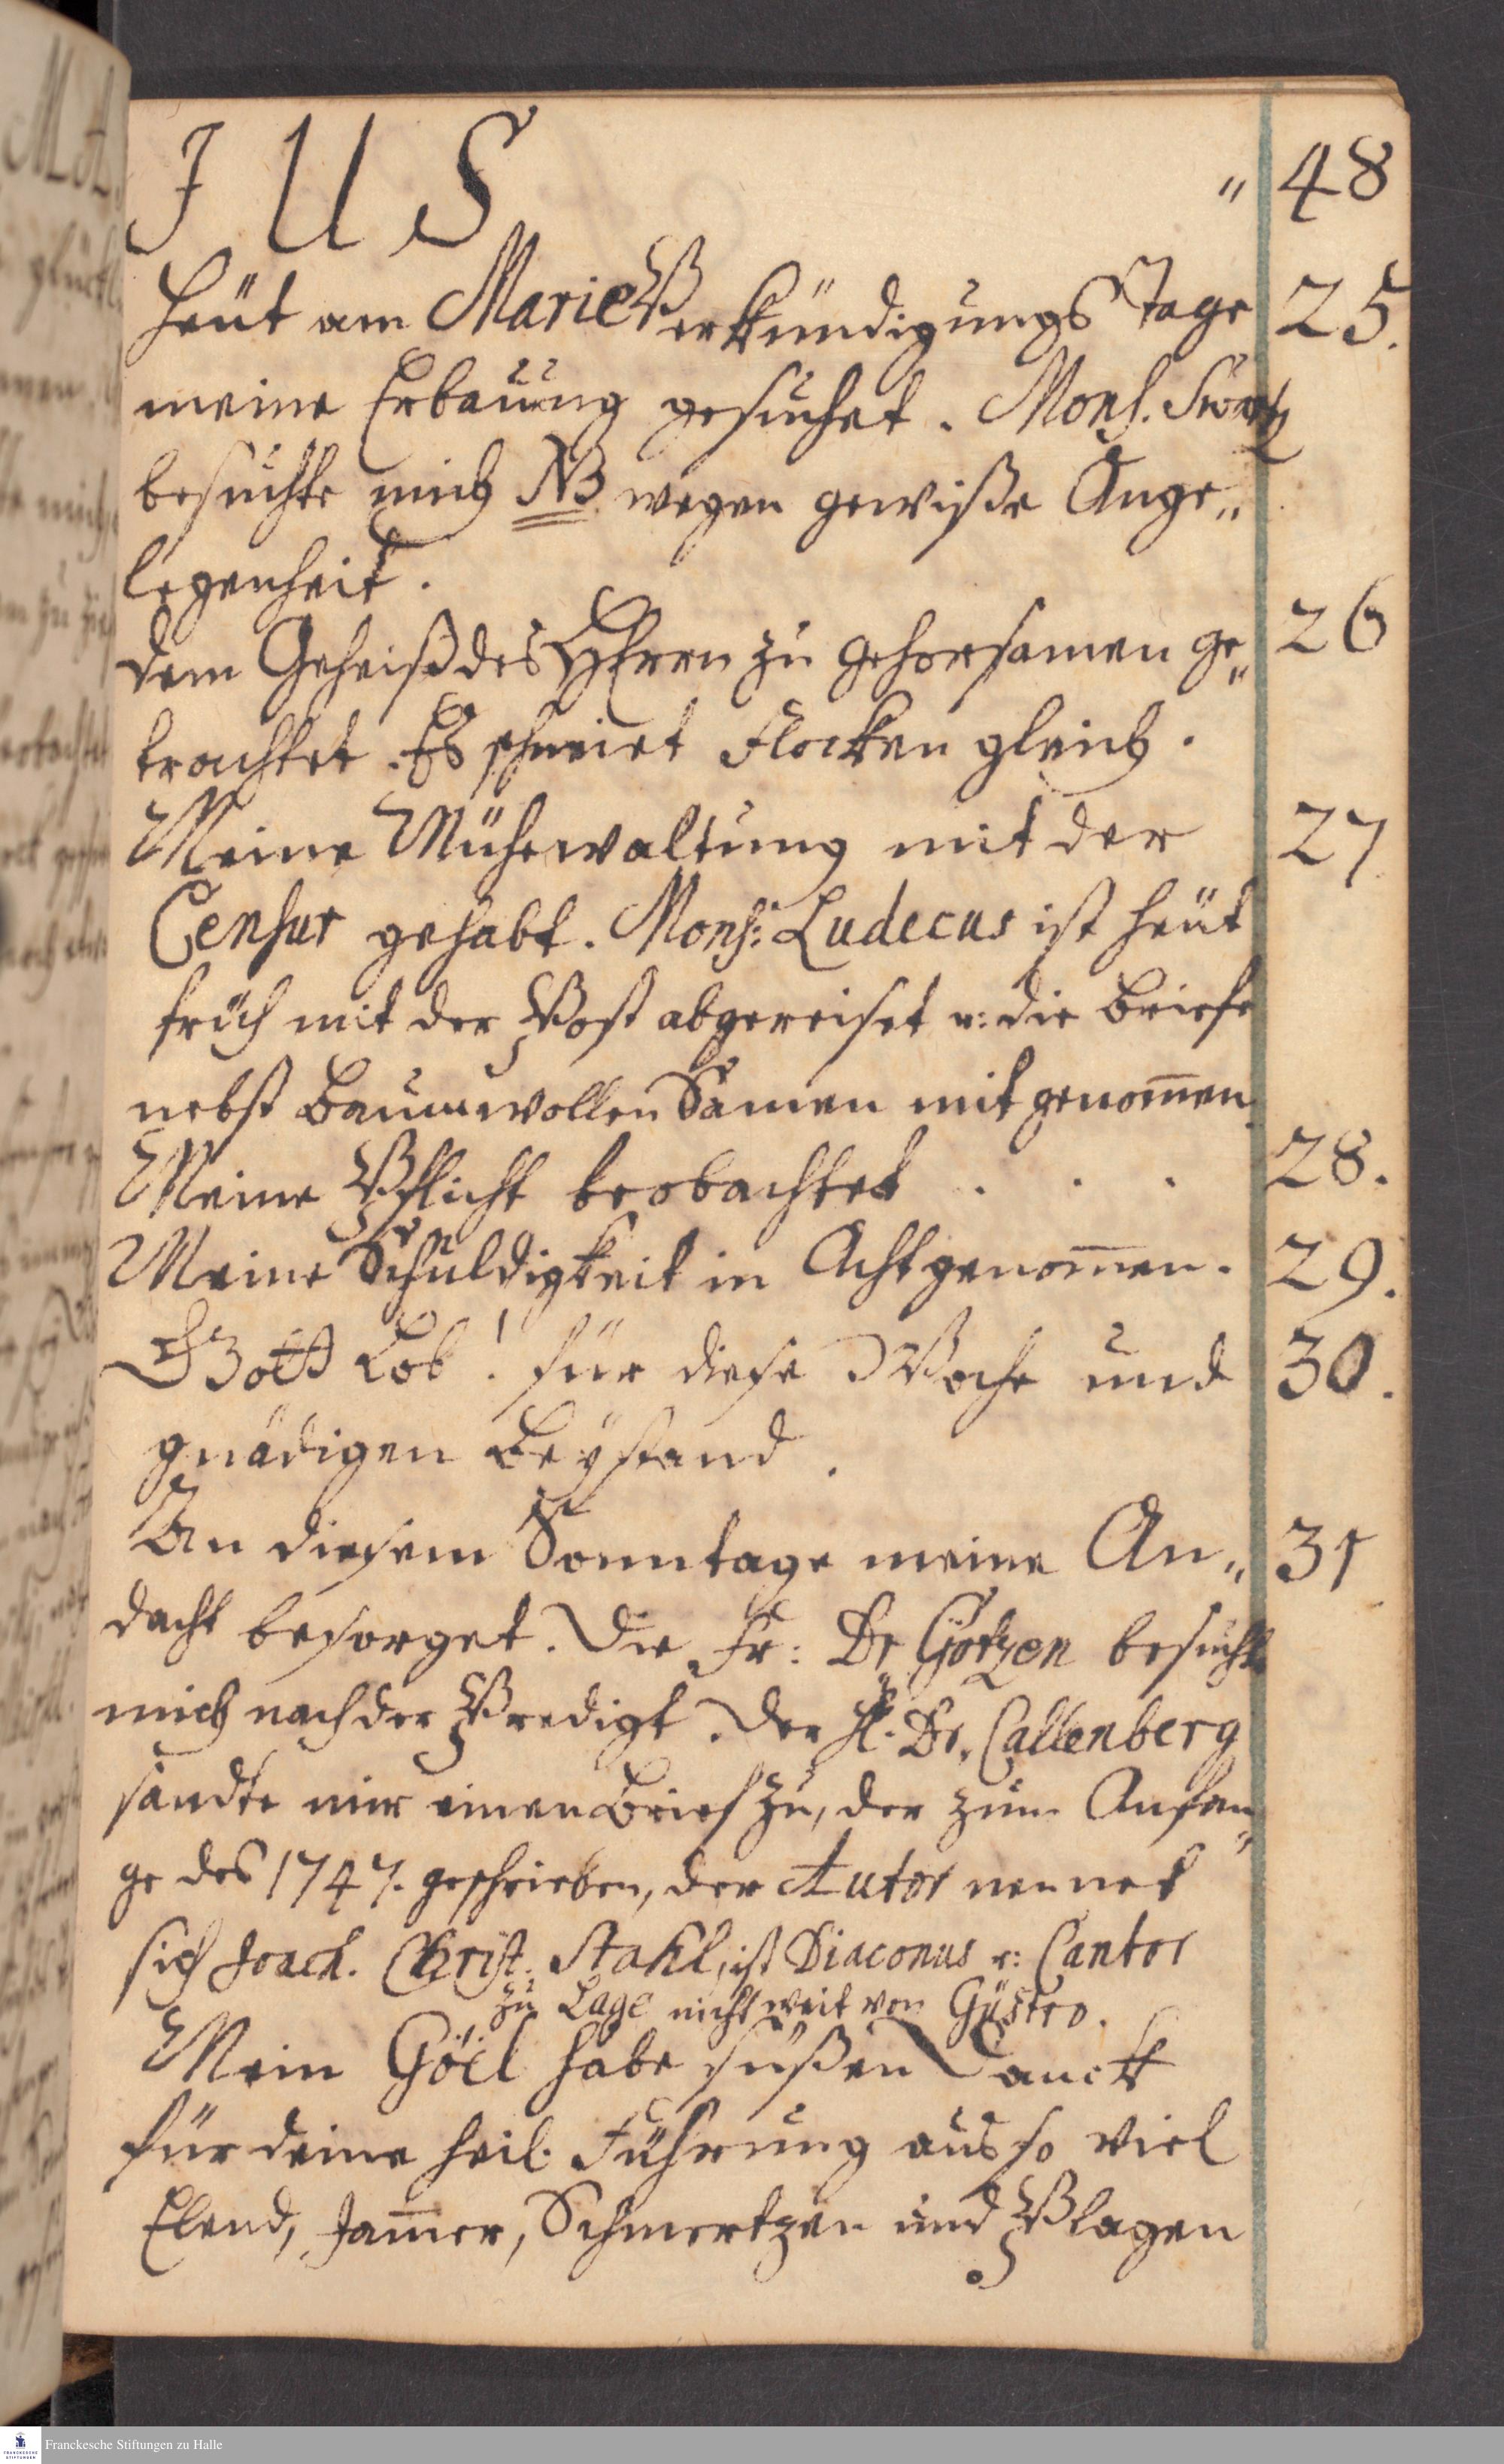 J U S „ 48
Heüt am Marie Verkündigungs Tage 25.
meine Erbauung gesuchet. Mons. Swartz
besuchte mich NB wegen gewiße Ange„
legenheit.
dem Geheiß des HErrn zu gehorsamen ge„ 26
trachtet. Es schneiet Flocken gleich.
Meine Mühewaltung mit der 27
Censur gehabt. Mons: Ludecus ist heüt
früh mit der Post abgereiset u: die Briefe
nebst Baumwollen Samen mit genom̄en.
Meine Pflicht beobachtet . . . 28.
Meine Schuldigkeit in Acht genom̄en. 29.
Gott Lob! für diese Woche und 30.
gnädigen Beÿstand.
An diesem Sonntage meine An„ 31
dacht besorget. Die Fr: Dr Götzen besuchte
mich nach der Predigt. Der H. Dr. Callenberg
sandte mir einen Brief zu, der zum Anfan„
ge des 1747. geschrieben, der Autor nennet
sich Joach. Christ. Stahl, ist Diaconus u: Cantor
zu Lage nicht weit von Güstro.
Mein Göel habe süßen Danck
für deine heil. Führung aus so viel
Elend, Jam̄er, Schmertzen und Plagen
Franckesche Stiftungen zu Halle